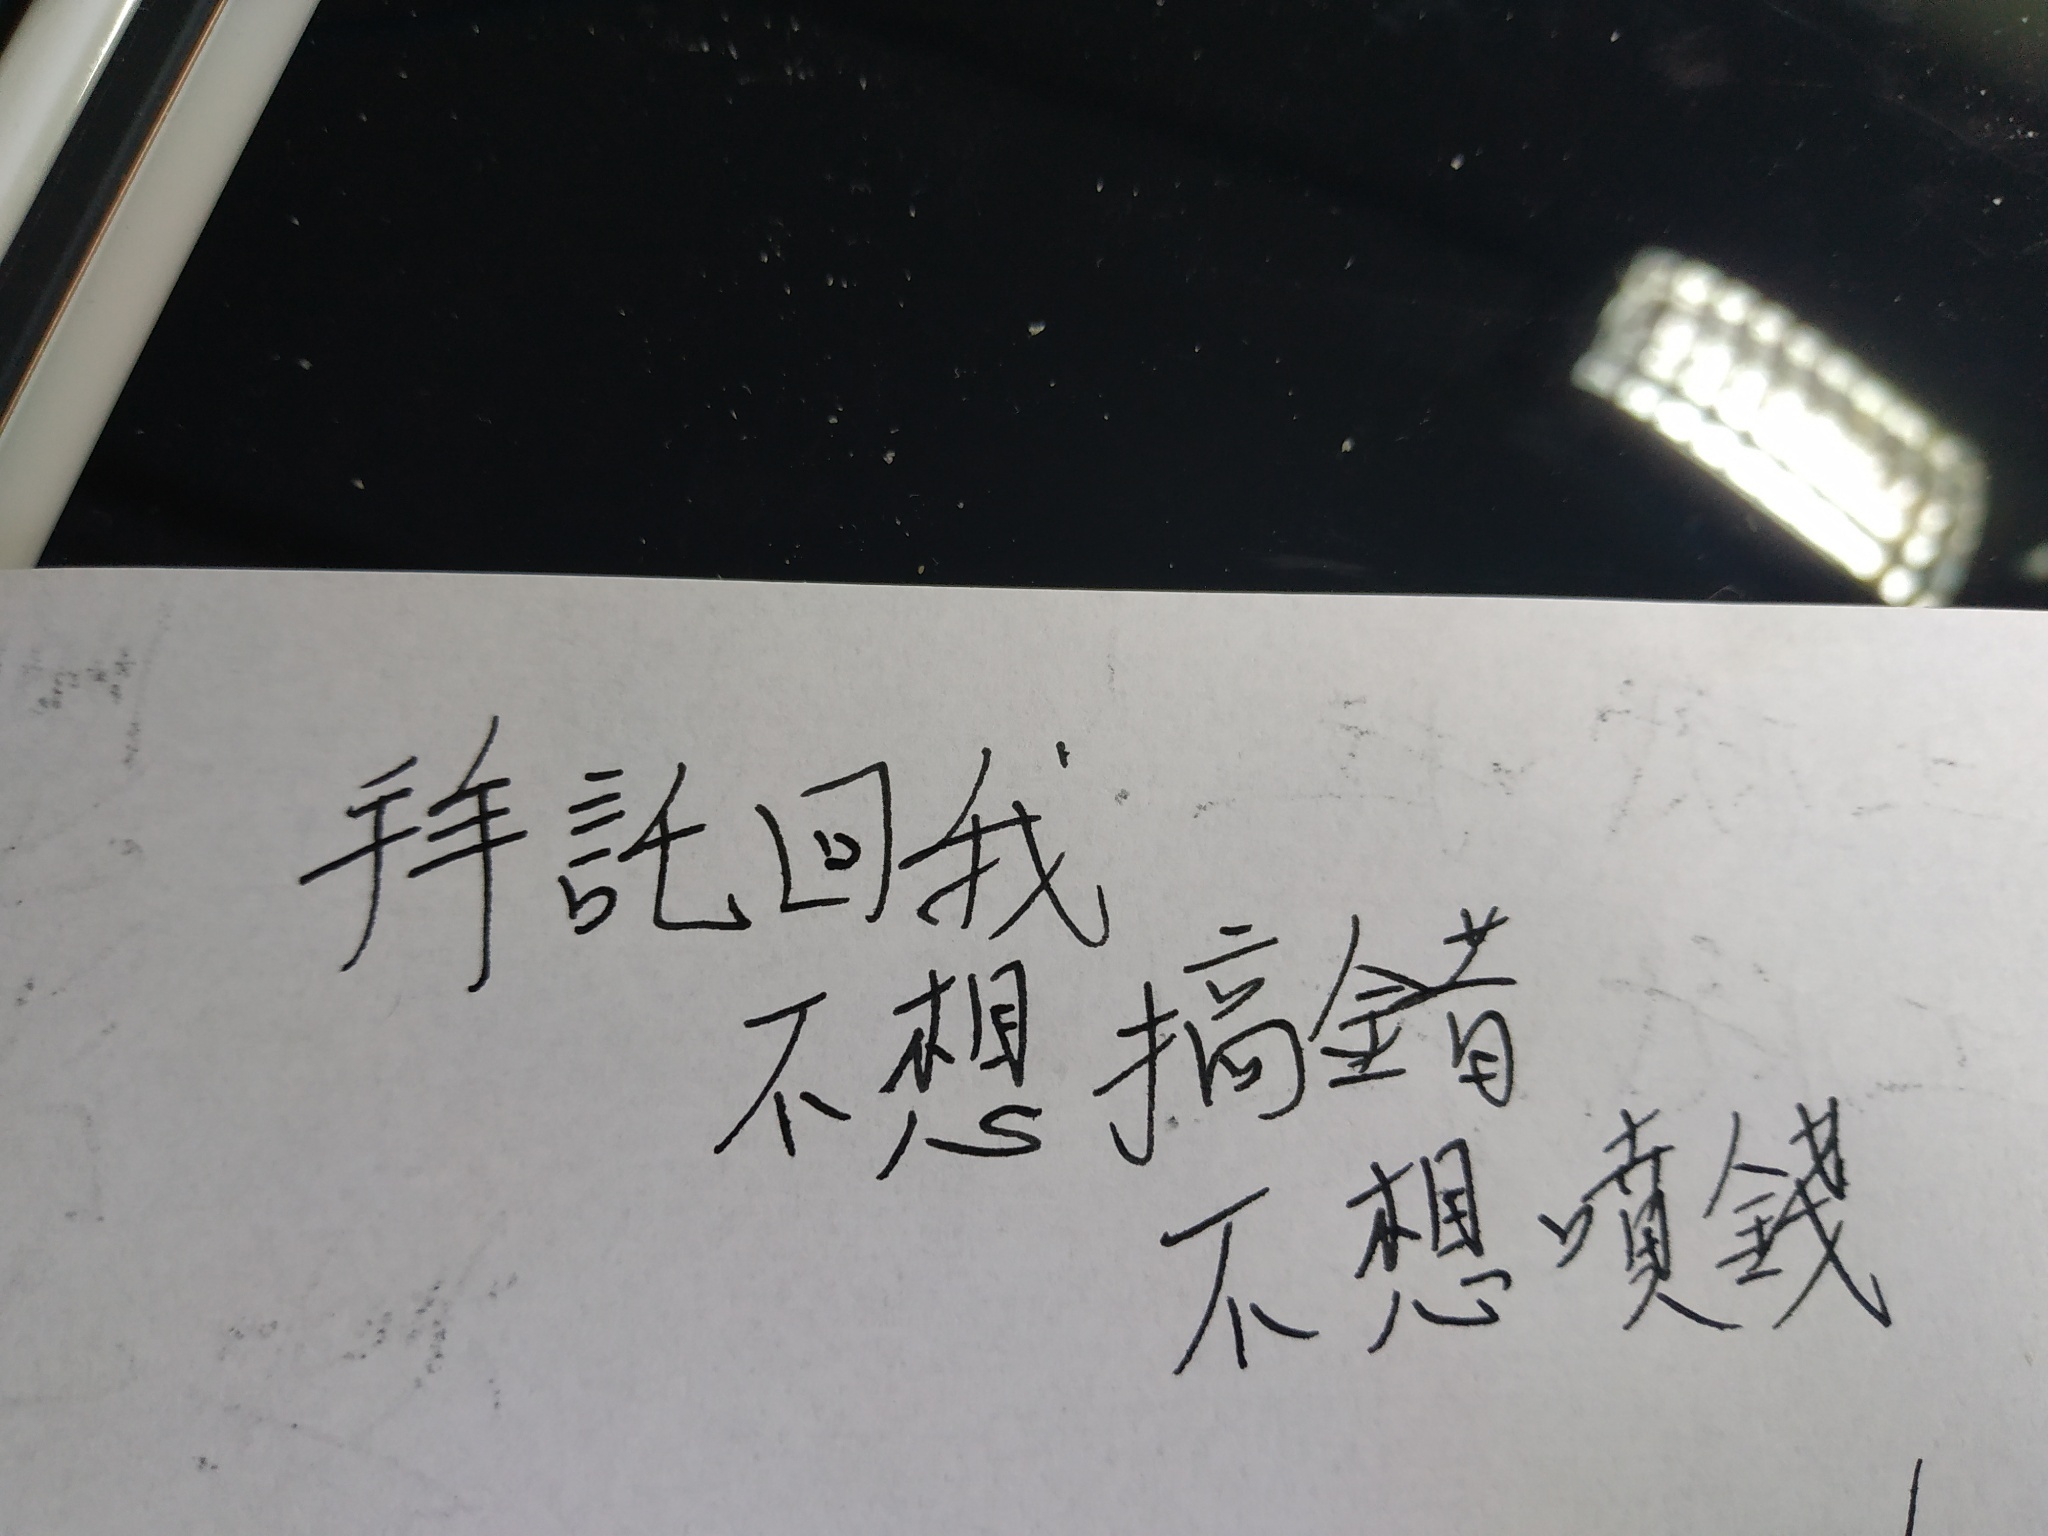 拜託回我
不想搞錯
不想噴錢